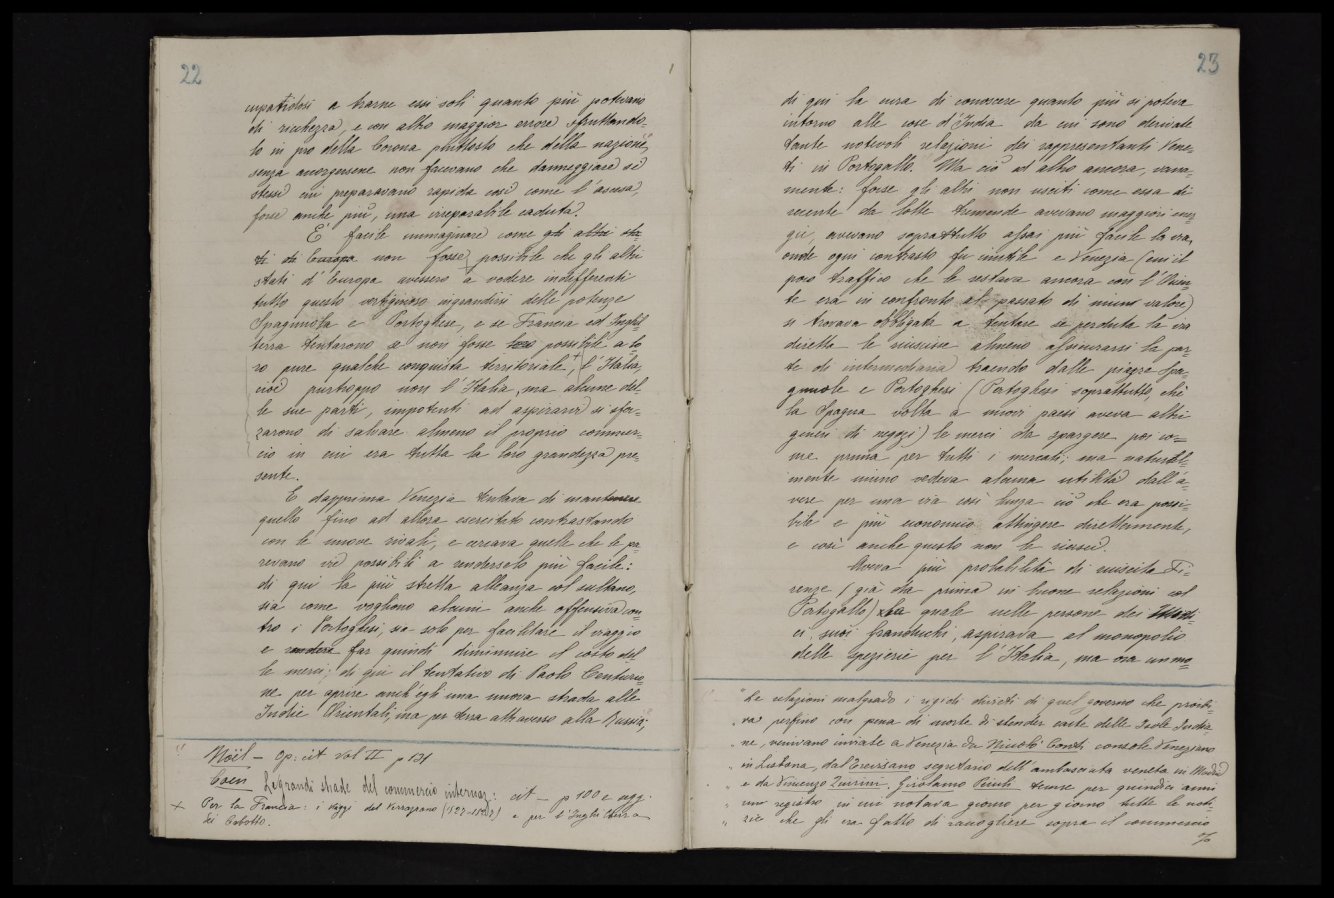 22
cupandosi a trarne essi soli quanto più potevano
di ricchezza, e con altro maggior errore sfruttando-
lo in pro della Corona piuttosto che della nazione,
senza accorgersene non facevano che danneggiare sè
stessi cui preparavano rapida così come l'ascesa
forse anche più, una irreparabile caduta.
E' facile immaginare come gli altri sta-
ti di Europa non fosse possibile che gli altri
stati d'Europa avessero a vedere indifferenti
tutto questo vertiginoso ingrandirsi delle potenze
Spagnuola e Portoghese, e se Francia ed Inghil-
terra tentarono se non fosse loro possibile a lo-
ro pure qualche conquista territoriale,+ l'Italia,
cioè purtroppo non l'Italia, ma alcune del-
le sue parti, impotenti ad aspirarvi si sfor-
zarono di salvare almeno il proprio commer-
cio in cui era tutta la loro grandezza pre-
sente.
E dapprima Venezia tentava di mantenere
quello fino ad allora esercitato contrastando
con le nuove rivali, e cercava quelle che le pa-
revano vie possibili a renderselo più facile:
di qui la più stretta alleanza col sultano,
sia come vogliono alcuni anche offensiva con-
tro i Portoghesi, sia solo per facilitare il viaggio
e rendere far quindi diminuire il costo del-
le merci; di qui il tentativo di Paolo Centurio-
ne per aprire anch'egli una nuova strada alle
Indie Orientali, ma per terra attraverso alla Russia;
Noël — Op: cit Vol II p 131
Coen Le grandi strade del commercio internaz: cit — p 100 e segg.
+ Per la Francia: i viaggi del Verrazzano e per l'Inghilterra
dei Cabotto.
23
di qui la cura di conoscere quanto più si poteva
intorno alle cose d'India da cui sono derivate
tante notevoli relazioni dei rappresentanti Vene-
ti in Portogallo. Ma ciò ed altro ancora, vana-
mente: forse gli altri non usciti come essa di
recente da lotte tremende avevano maggiori ener
gie, avevano soprattutto assai più facile la via,
onde ogni contrasto fu inutile e Venezia (cui il
poco traffico che le restava ancora con l'Orien-
te era in confronto al passato di niun valore)
si trovava obbligata a tentare se perduta la via
diretta le riuscisse almeno assicurarsi la par-
te di intermediaria traendo dalle piazze Spa-
gnuole e Portoghesi (Portoghesi soprattutto chè
la Spagna volta a nuovi paesi aveva altri
generi di negozi) le merci da spargere poi co-
me prima per tutti i mercati; ma natural-
mente niuno vedeva alcuna utilità dall'a-
vere per una via così lunga ciò che era possi-
bile e più economico attingere direttamente,
e così anche questo non le riuscì.
Aveva più probabilità di riuscita Fi-
renze (già da prima in buone relazioni col
Portogallo) la quale nelle persone dei Medi-
ci, suoi Granduchi, aspirava al monopolio
delle spezierie per l'Italia, ma ora un mo-
" Le relazioni malgrado i rigidi divieti di quel governo che proibi-
" va perfino con pena di morte di stender carte delle Isole India-
" ne, venivano inviate a Venezia da Nicolò Conti console Veneziano
" in Lisbona, dal Trevisano segretario dell'ambasciata veneta in Madrid
" e da Vincenzo Quirini. Girolamo Priuli tenne per quindici anni
" un registro in cui notava giorno per giorno tutte le noti-
" zie che gli era fatto di raccogliere sopra il commercio
%